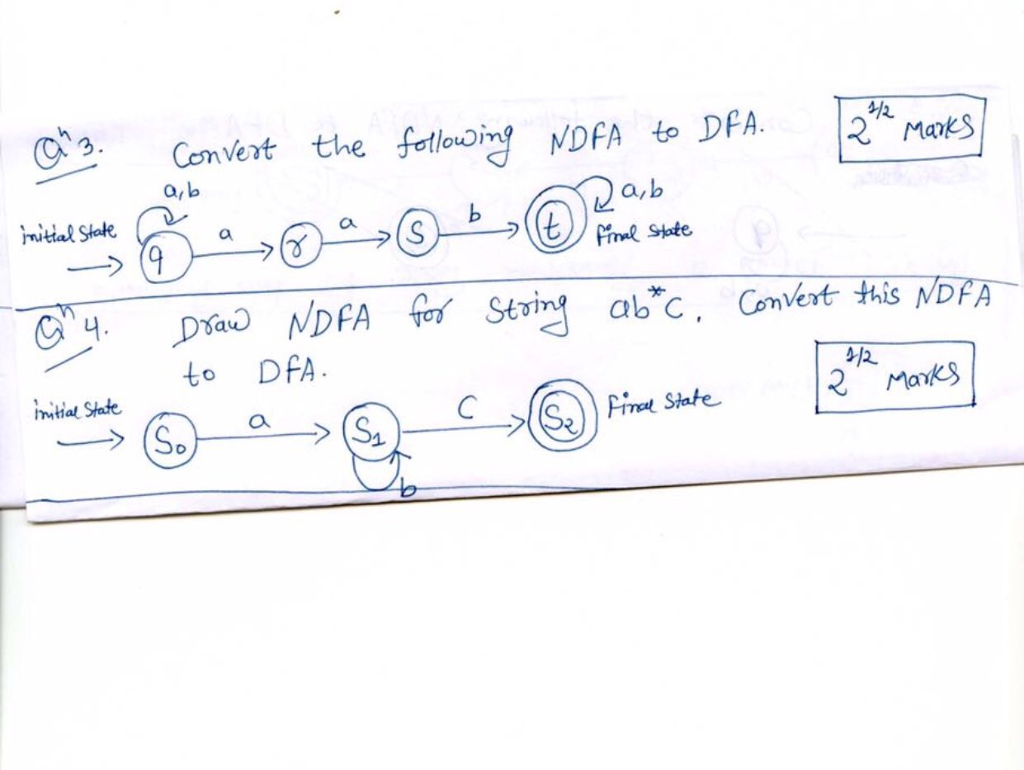 Qⁿ3. Convert the following NDFA to DFA. 2^1/2 Marks
a,b
initial state q a r a S b t a,b
final state
Qⁿ4. Draw NDFA for String ab*c. Convert this NDFA
to DFA. 2^1/2 Marks
initial state S₀ a S₁ C S₂ final state
b